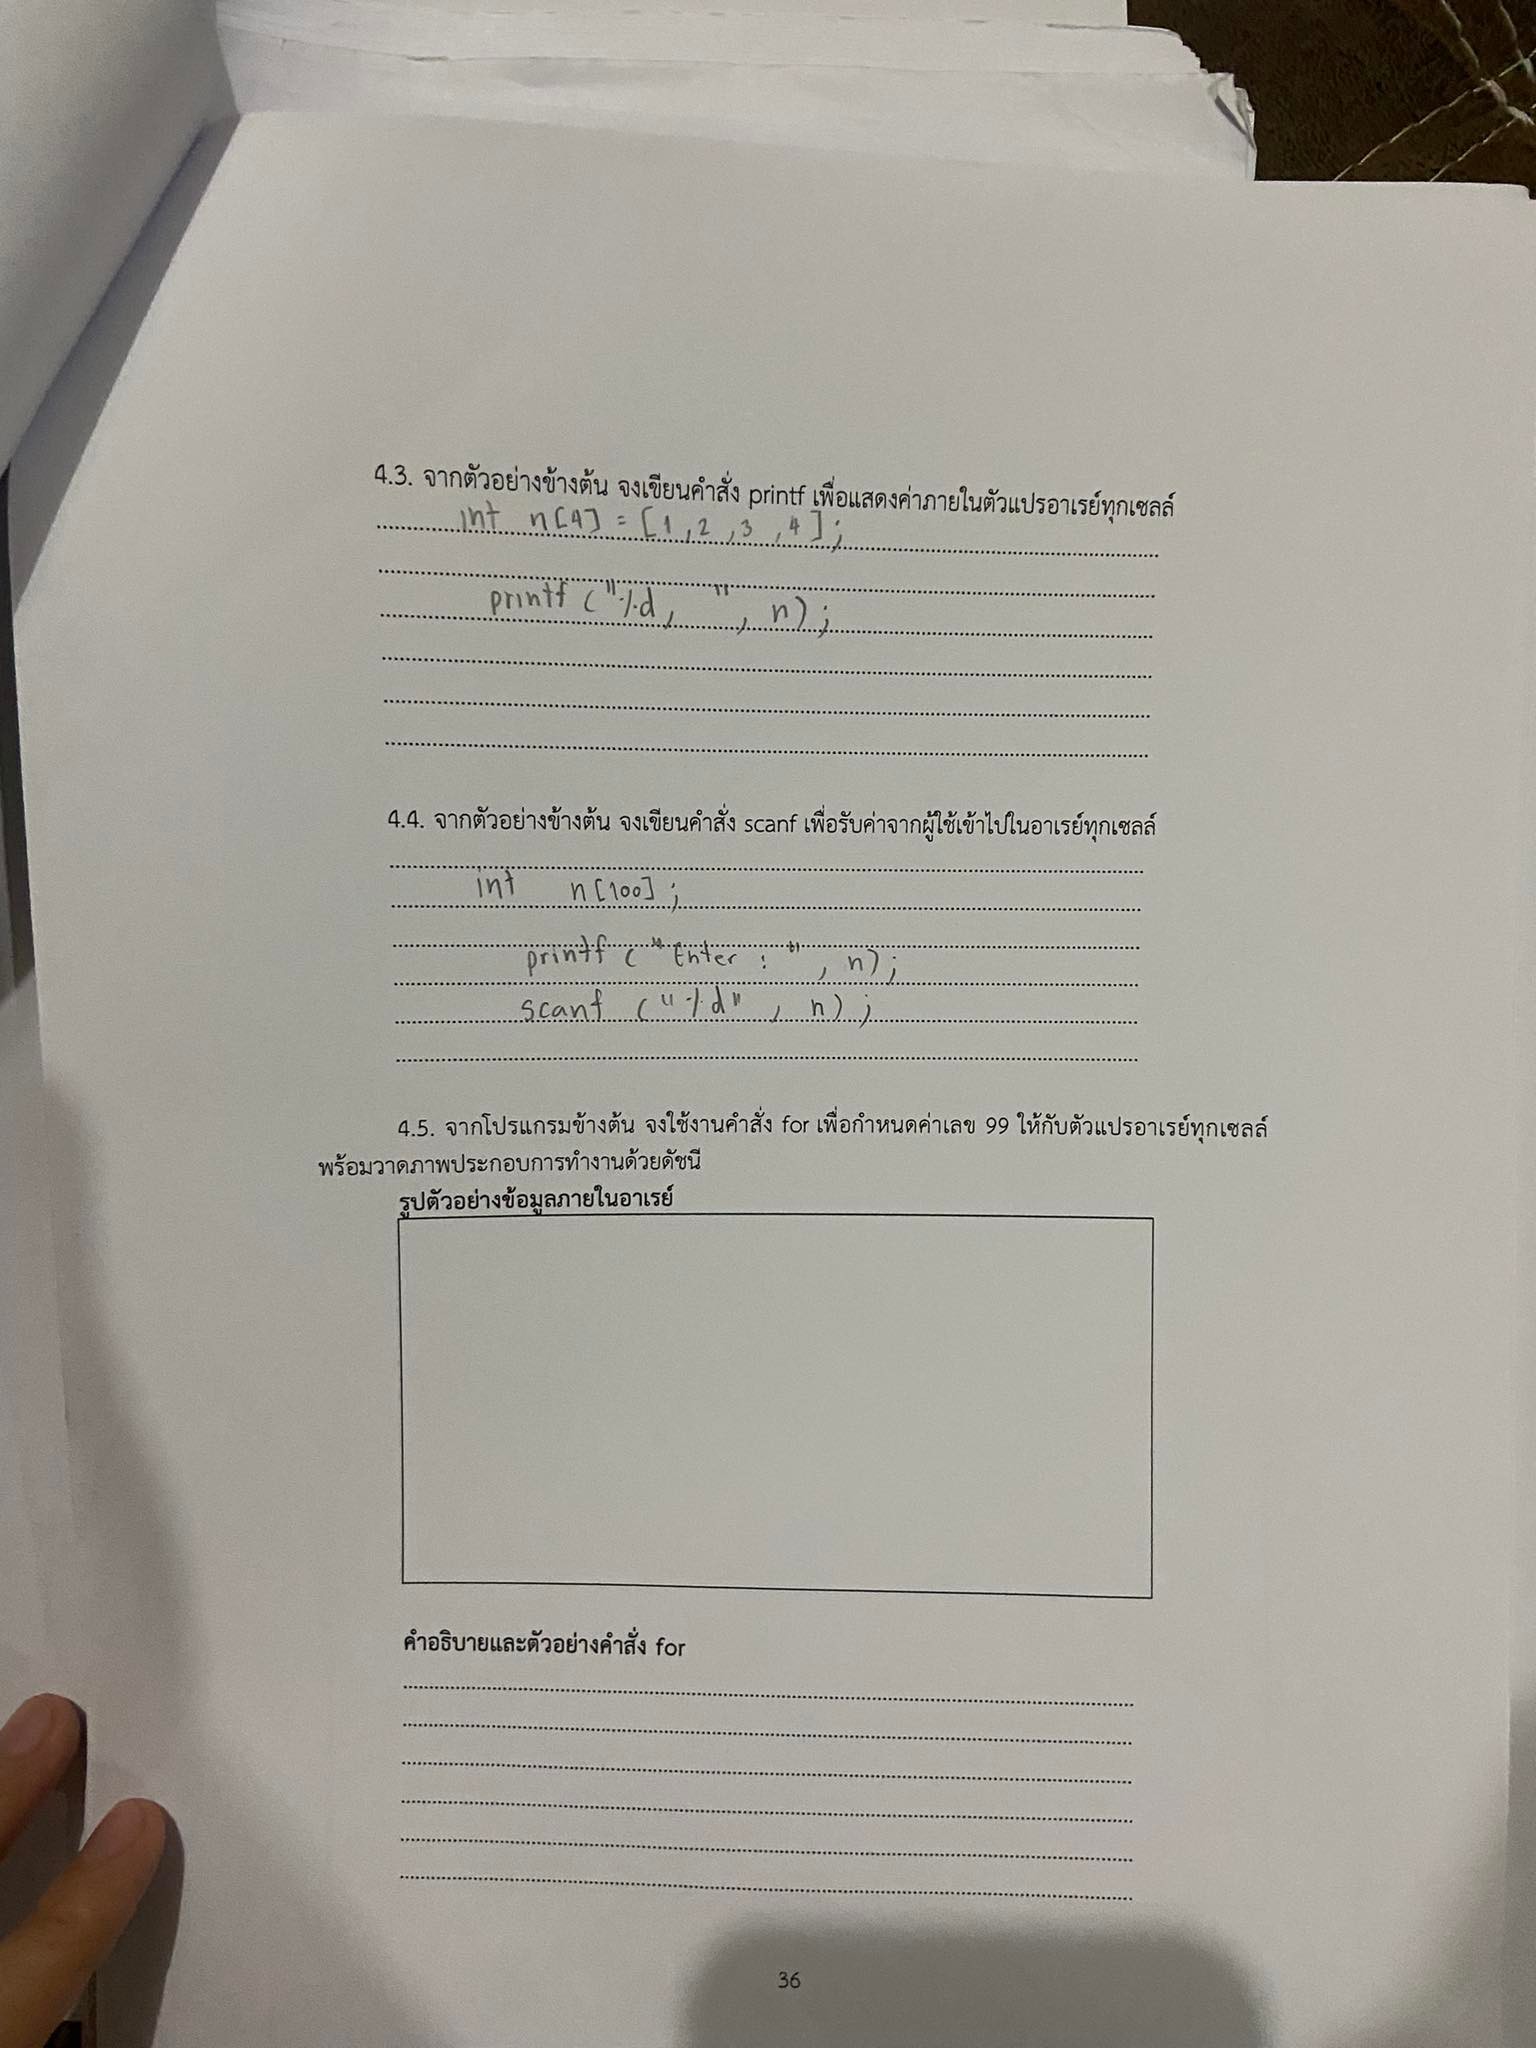 4.3. จากตัวอย่างข้างต้น จงเขียนคำสั่ง printf เพื่อแสดงค่าภายในตัวแปรอาเรย์ทุกเซลล์
int n[4] = [1,2,3,4];
printf("%d, ", n);
4.4. จากตัวอย่างข้างต้น จงเขียนคำสั่ง scanf เพื่อรับค่าจากผู้ใช้เข้าไปในอาเรย์ทุกเซลล์
int n[100];
printf("Enter : ", n);
scanf("%d", n);
4.5. จากโปรแกรมข้างต้น จงใช้งานคำสั่ง for เพื่อกำหนดค่าเลข 99 ให้กับตัวแปรอาเรย์ทุกเซลล์
พร้อมวาดภาพประกอบการทำงานด้วยดัชนี
รูปตัวอย่างข้อมูลภายในอาเรย์
คำอธิบายและตัวอย่างคำสั่ง for
36